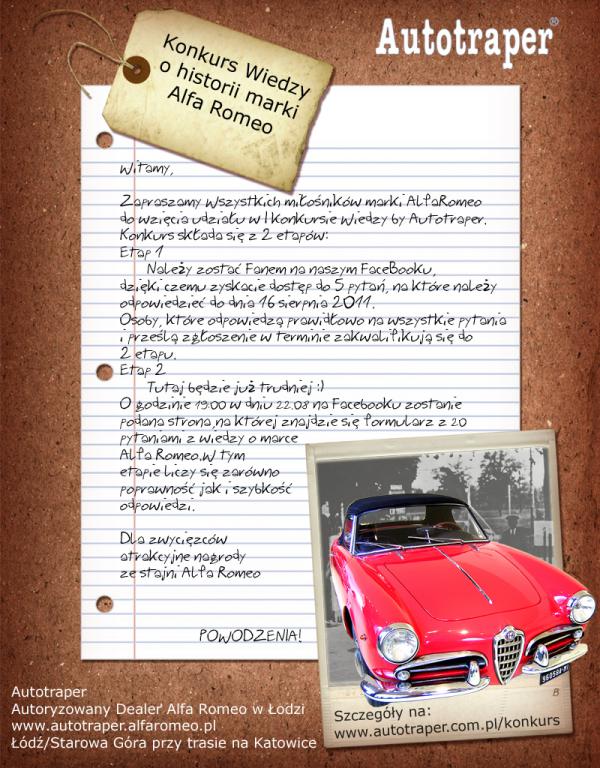 Autotraper®
Konkurs Wiedzy
o historii marki
Alfa Romeo
Witamy,
Zapraszamy wszystkich miłośników marki AlfaRomeo
do wzięcia udziału w I Konkursie Wiedzy by Autotraper.
Konkurs składa się z 2 etapów:
Etap 1
Należy zostać Fanem na naszym FaceBooku,
dzięki czemu zyskacie dostęp do 5 pytań, na które należy
odpowiedzieć do dnia 16 sierpnia 2011.
Osoby, które odpowiedzą prawidłowo na wszystkie pytania
i prześlą zgłoszenie w terminie zakwalifikują się do
2 etapu.
Etap 2
Tutaj będzie już trudniej :)
O godzinie 19:00 w dniu 22.08 na Facebooku zostanie
podana strona,na której znajdzie się formularz z 20
pytaniami z wiedzy o marce
Alfa Romeo.W tym
etapie liczy się zarówno
poprawność jak i szybkość
odpowiedzi.
Dla zwycięzców
atrakcyjne nagrody
ze stajni Alfa Romeo
POWODZENIA!
Szczegóły na:
www.autotraper.com.pl/konkurs
Autotraper
Autoryzowany Dealer Alfa Romeo w Łodzi
www.autotraper.alfaromeo.pl
Łódź/Starowa Góra przy trasie na Katowice